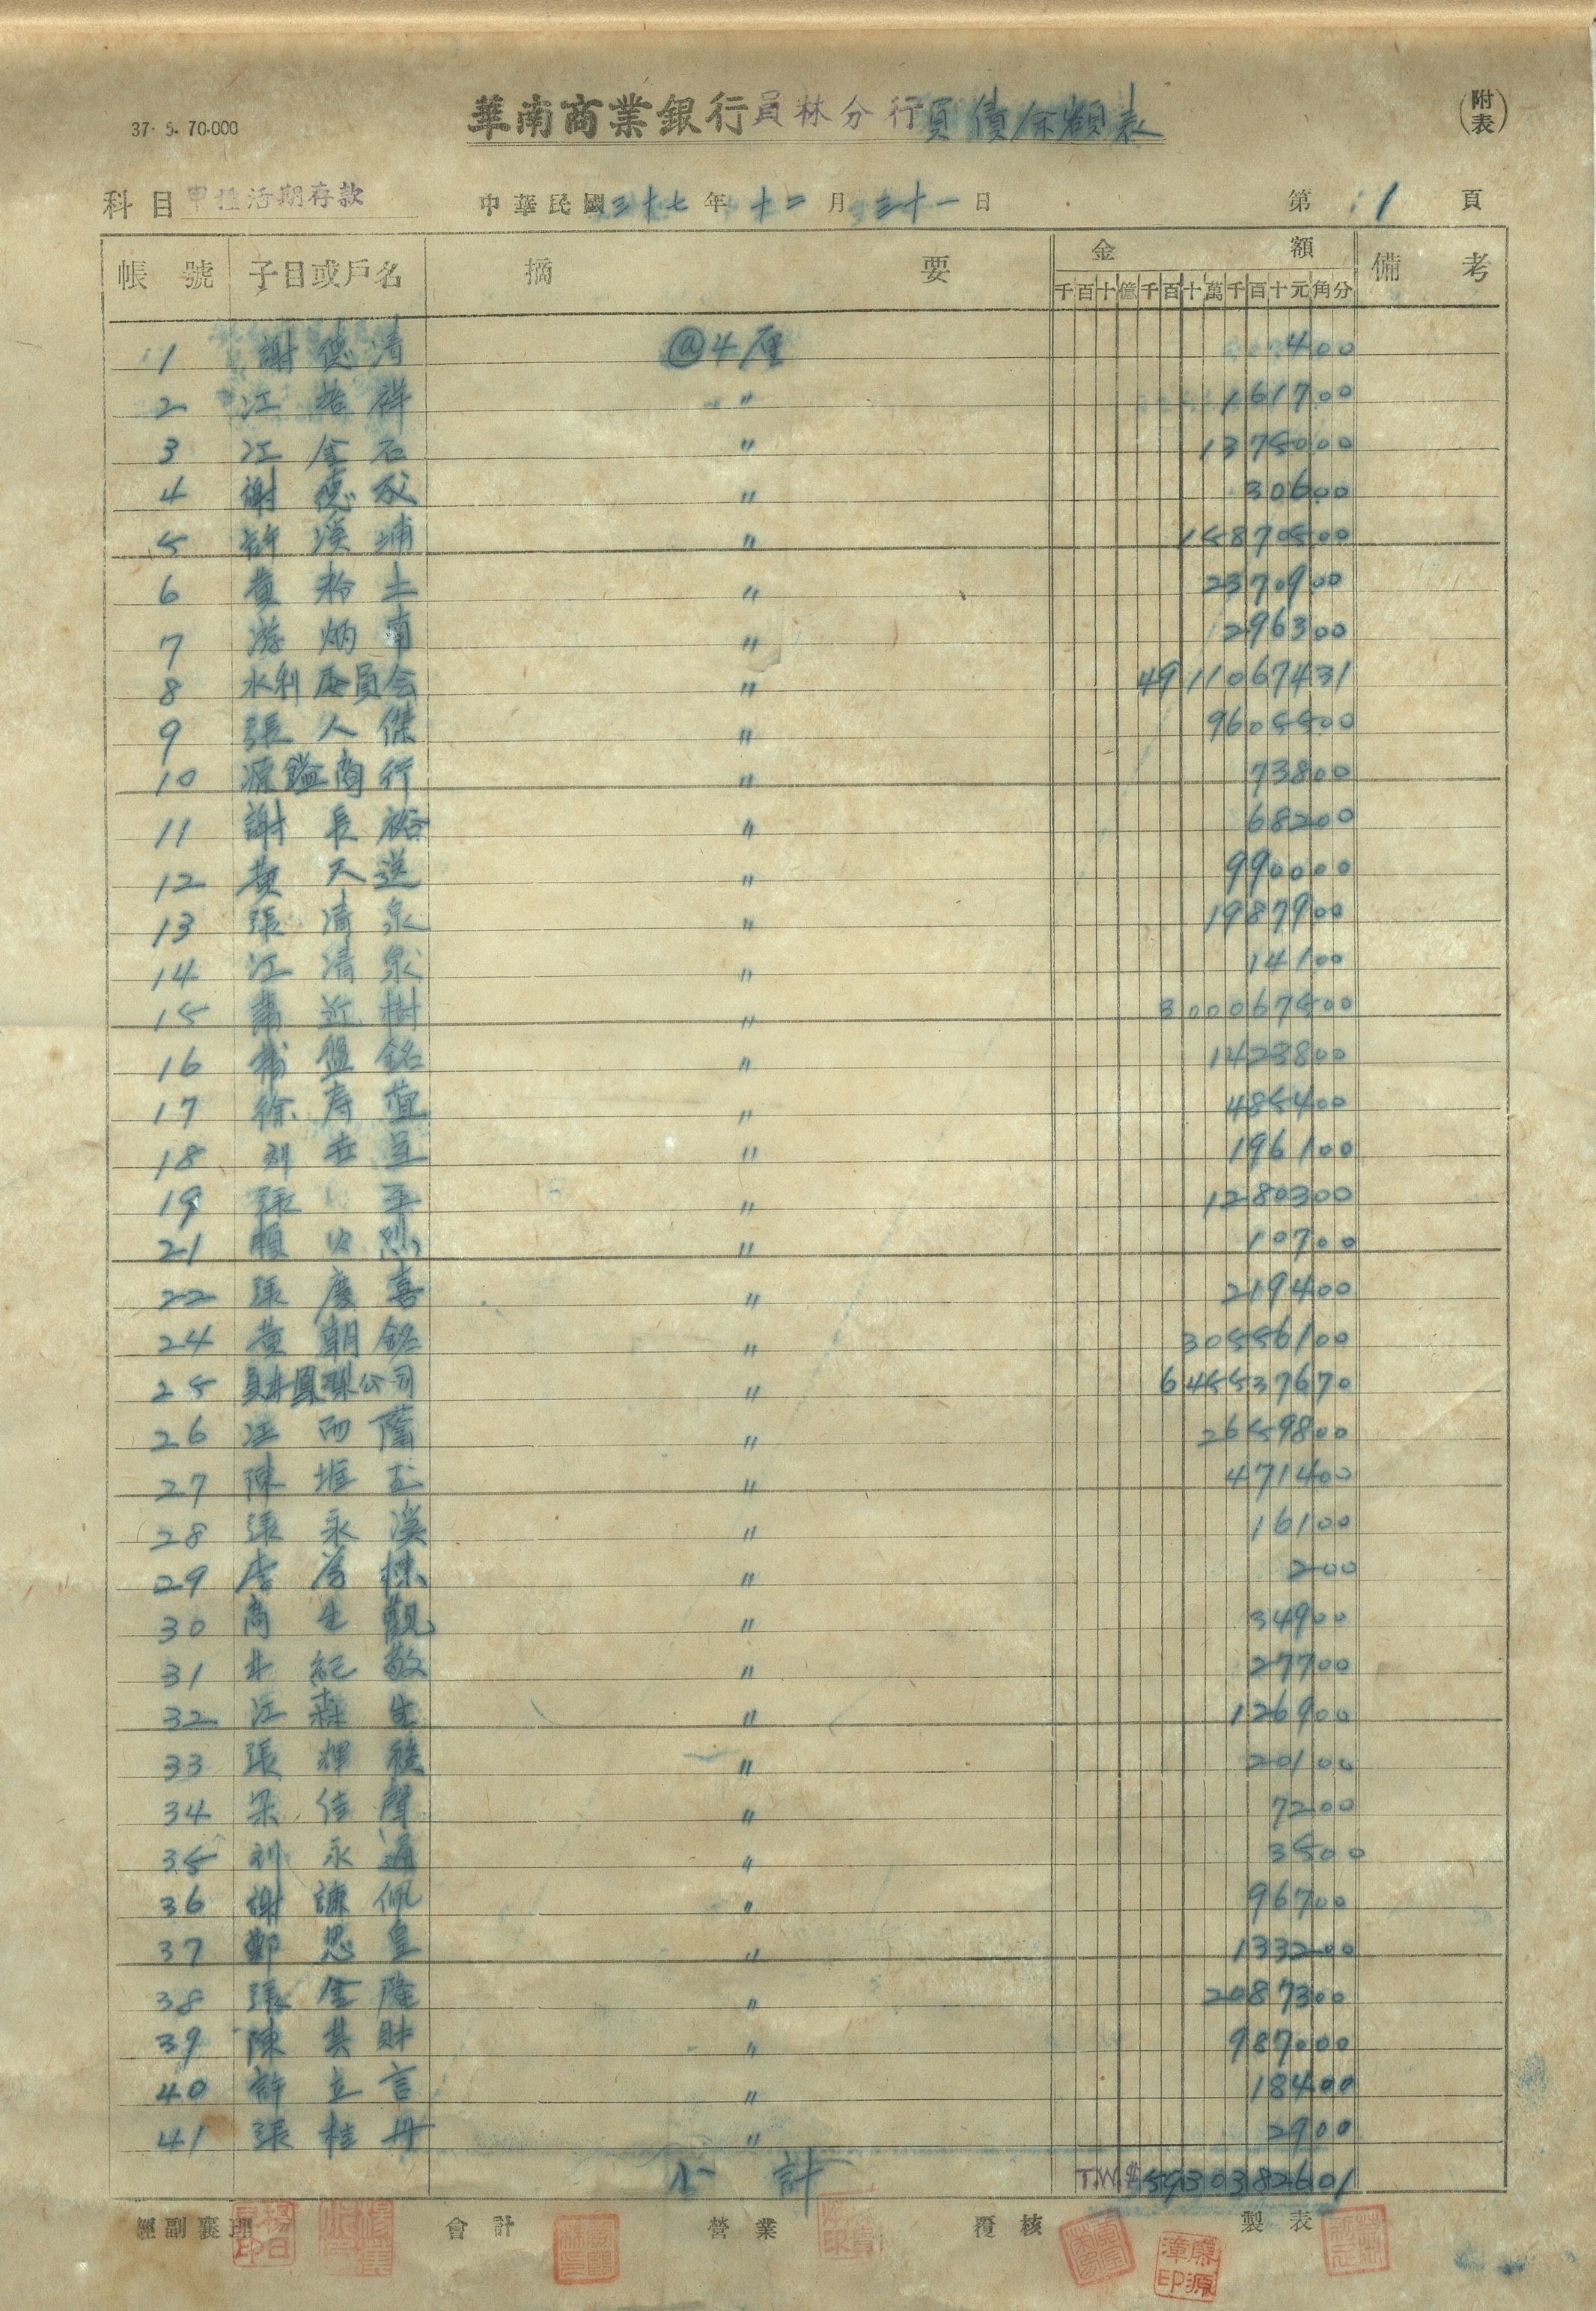 37. 5. 70.000
華南商業銀行員林分行負債餘額表
(附表)
科目 甲種活期存款 中華民國三十七年十二月三十一日 第1頁
帳號 子目或戶名 摘要 金額 備考
千百十億千百十萬千百十元角分
1 謝德清 @4厘 400
2 江 祥 〃 161700
3 江金石 〃 1375000
4 謝德 〃 30600
5 許溪埔 〃 15870500
6 黃 土 〃 2370900
7 游炳南 〃 296300
8 水利委員会 〃 4911067431
9 張人傑 〃 9605500
10 源鎰商行 〃 73800
11 謝長裕 〃 68200
12 黃天送 〃 990000
13 張清泉 〃 1987900
14 江清泉 〃 14100
15 近樹 〃 300067500
16 盤銘 〃 1423800
17 徐寿 〃 485400
18 刘 〃 196100
19 張 〃 1280300
21 火烈 〃 10700
22 張慶喜 〃 219400
24 黃朝銘 〃 30556100
25 員林鳳梨公司 〃 645537670
26 江 蔭 〃 2659800
27 陳 〃 471400
28 張永溪 〃 16100
29 〃 200
30 生觀 〃 34900
31 紀敬 〃 27700
32 江森生 〃 126900
33 張輝 〃 20100
34 梁佳聲 〃 7200
35 刘永通 〃 3500
36 謝諫佩 〃 96700
37 鄭恩皇 〃 133200
38 張金隆 〃 2087300
39 陳其財 〃 987000
40 許立言 〃 18400
41 張桂丹 〃 2900
小計 T.W.$5930382601
經副襄理 會計 營業 覆核 製表